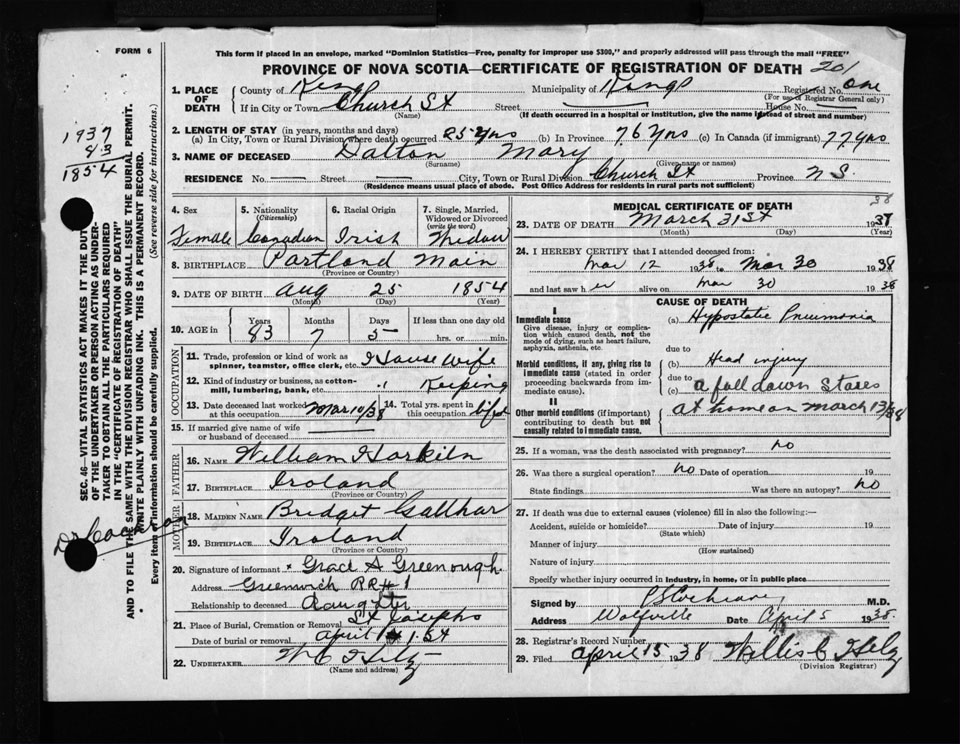 FORM 6
This form if placed in an envelope, marked "Dominion Statistics—Free, penalty for improper use $300," and properly addressed will pass through the mail "FREE"
PROVINCE OF NOVA SCOTIA—CERTIFICATE OF REGISTRATION OF DEATH 201
1. PLACE OF DEATH County of Kings Municipality of Kings Registered No. One
(For use of Registrar General only)
If in City or Town Church St Street House No.
(Name) (If death occurred in a hospital or institution, give the name instead of street and number)
2. LENGTH OF STAY (in years, months and days)
(a) In City, Town or Rural Division where death occurred 25 yrs (b) In Province 76 yrs (c) In Canada (if immigrant) 77 yrs
3. NAME OF DECEASED Dalton Mary
(Surname) (Given name or names)
RESIDENCE No. — Street — City, Town or Rural Division Church St Province N S.
(Residence means usual place of abode. Post Office Address for residents in rural parts not sufficient)
1937
83
1854
SEC. 46—VITAL STATISTICS ACT MAKES IT THE DUTY
OF THE UNDERTAKER OR PERSON ACTING AS UNDER-
TAKER TO OBTAIN ALL THE PARTICULARS REQUIRED
IN THE "CERTIFICATE OF REGISTRATION OF DEATH"
AND TO FILE THE SAME WITH THE DIVISION REGISTRAR WHO SHALL ISSUE THE BURIAL PERMIT.
WRITE PLAINLY WITH UNFADING INK. THIS IS A PERMANENT RECORD.
Every item of information should be carefully supplied. (See reverse side for instructions.)
Dr Cochran
4. Sex Female
5. Nationality (Citizenship) Canadian
6. Racial Origin Irish
7. Single, Married, Widowed or Divorced (write the word) Widow
8. BIRTHPLACE Portland Main
(Province or Country)
9. DATE OF BIRTH Aug 25 1854
(Month) (Day) (Year)
10. AGE in Years Months Days If less than one day old
83 7 5 hrs. or min.
OCCUPATION
11. Trade, profession or kind of work as spinner, teamster, office clerk, etc. House Wife
12. Kind of industry or business, as cotton-mill, lumbering, bank, etc. " Keeping
13. Date deceased last worked at this occupation Mar 10/38 14. Total yrs. spent in this occupation life
15. If married give name of wife or husband of deceased
FATHER
16. NAME William Harkiln
17. BIRTHPLACE Iroland
(Province or Country)
MOTHER
18. MAIDEN NAME Bridget Gallhar
19. BIRTHPLACE Iroland
(Province or Country)
20. Signature of informant x Grace A Greenough
Address Greenwich RR#1
Relationship to deceased daughter
21. Place of Burial, Cremation or Removal St Josephs
Date of burial or removal April
22. UNDERTAKER W C Hilz
(Name and address)
MEDICAL CERTIFICATE OF DEATH
38
23. DATE OF DEATH March 31st 1937
(Month) (Day) (Year)
24. I HEREBY CERTIFY that I attended deceased from:
Mar 12 1938 to Mar 30 1938
and last saw her alive on Mar 30 1938
CAUSE OF DEATH
I
Immediate cause
Give disease, injury or complication which caused death, not the mode of dying, such as heart failure, asphyxia, asthenia, etc.
(a) Hypostatic Pneumonia
due to
Morbid conditions, if any, giving rise to immediate cause (stated in order proceeding backwards from immediate cause).
(b) Head injury
due to
(c) a fall down Stares
II
Other morbid conditions (if important) contributing to death but not causally related to immediate cause.
at home on March 12/38
25. If a woman, was the death associated with pregnancy? no
26. Was there a surgical operation? no Date of operation 19
State findings Was there an autopsy? no
27. If death was due to external causes (violence) fill in also the following:—
Accident, suicide or homicide? Date of injury 19
(State which)
Manner of injury
(How sustained)
Nature of injury
Specify whether injury occurred in industry, in home, or in public place
Signed by Cochrane M.D.
Address Wolfville Date April 5 1938.
28. Registrar's Record Number
29. Filed April 15 1938 Willis C Hilz
(Division Registrar)